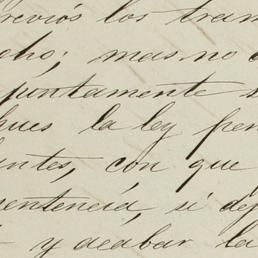 previos los tram
cho; mas no
pontamente s
pues la ley pen
entes, con que
sentencia, si dej
y acabar la